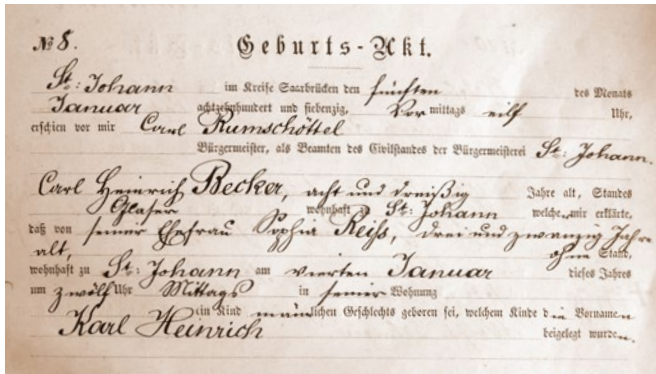 № 8. Geburts-Akt.
St: Johann im Kreise Saarbrücken den fünften des Monats
Januar achtzehnhundert und siebenzig, Vor mittags eilf Uhr,
erschien vor mir Carl Rumschöttel
Bürgermeister, als Beamten des Civilstandes der Bürgermeisterei St: Johann.
Carl Heinrich Becker, acht und dreißig Jahre alt, Standes
Glaser wohnhaft zu St: Johann welcher mir erklärte,
daß von seiner Ehefrau Sophia Reiß, drei und zwanzig Jahre
alt, ohne Stand,
wohnhaft zu St: Johann am vierten Januar dieses Jahres
um zwölf Uhr Mittags in seiner Wohnung
ein Kind männlichen Geschlechts geboren sei, welchem Kinde die Vornamen
Karl Heinrich beigelegt wurden.